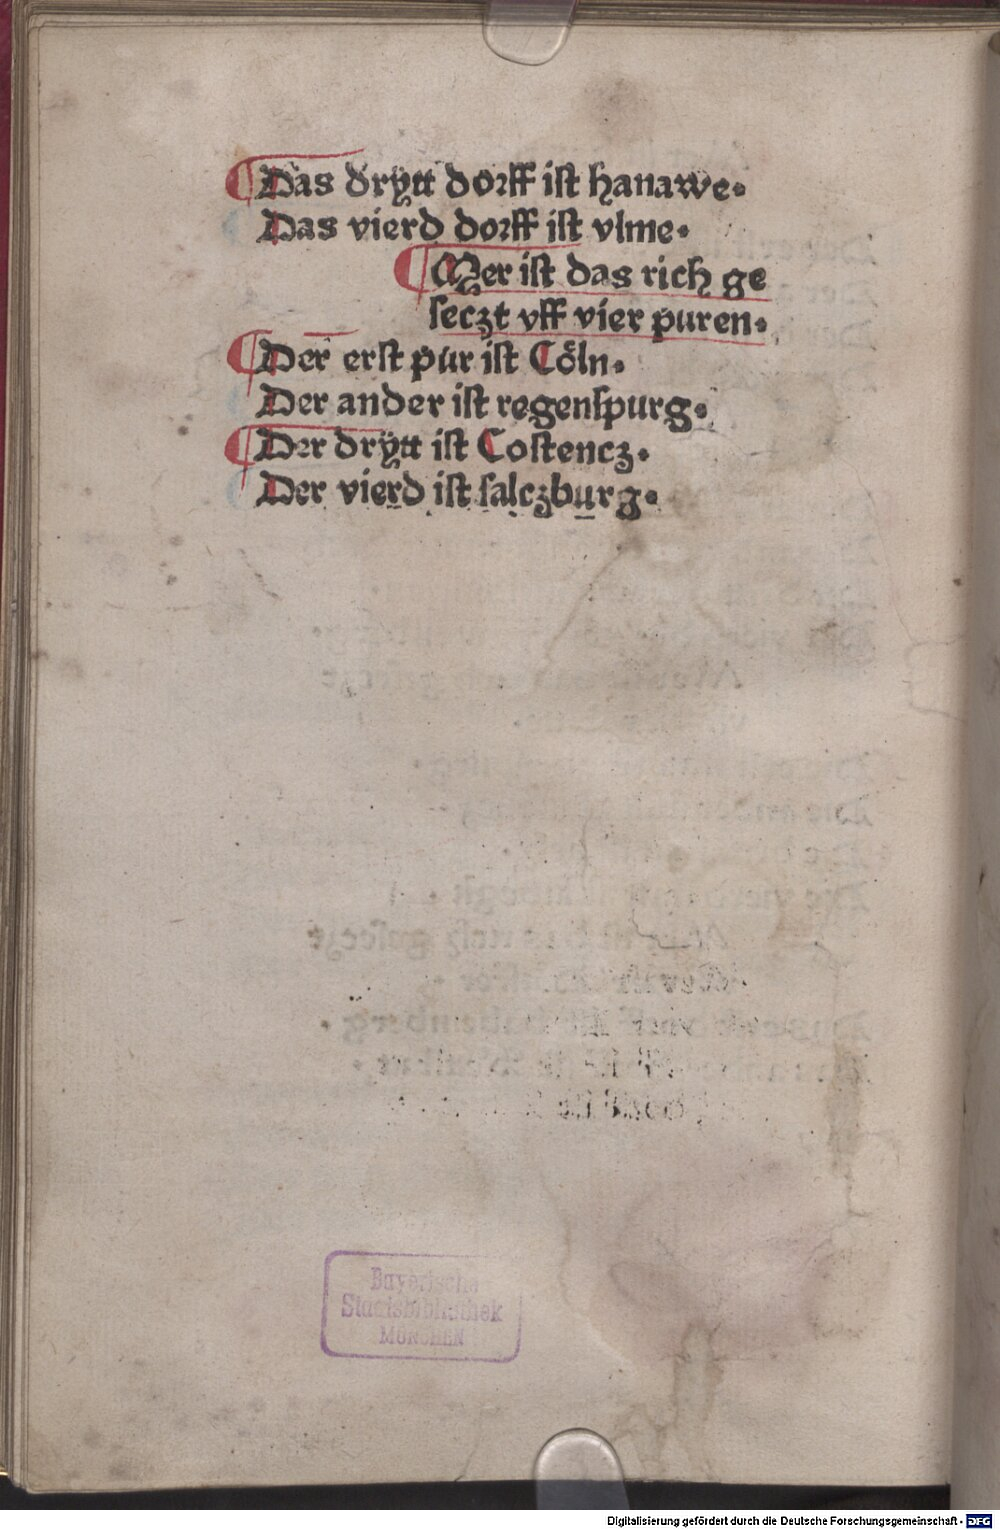 Das drÿtt dorff ist hanawe.
Das vierd dorff ist vlme.
Mer ist das rich ge
seczt vff vier puren.
Der erst pur ist Cöln.
Der ander ist regenspurg.
Der drÿtt ist Costencz.
Der vierd ist salczburg.
Bayerische
Staatsbibliothek
MÜNCHEN
Digitalisierung gefördert durch die Deutsche Forschungsgemeinschaft - DFG